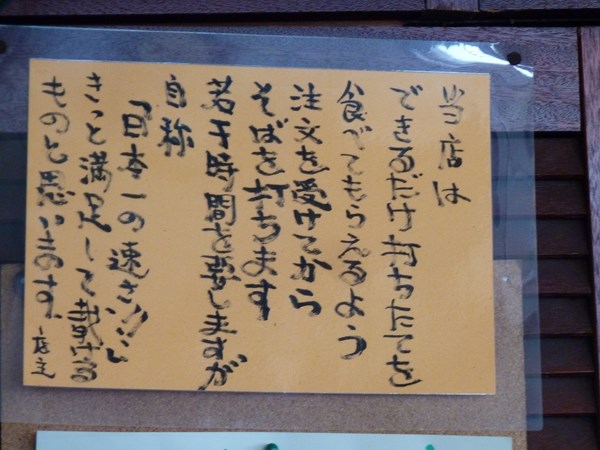 当店は
できるだけ打ちたてを
食べてもらえるよう
注文を受けてから
そばを打ちます
若干時間を要しますが
自称
「日本一の速さ!!」
きっと満足して戴ける
ものと思います。店主